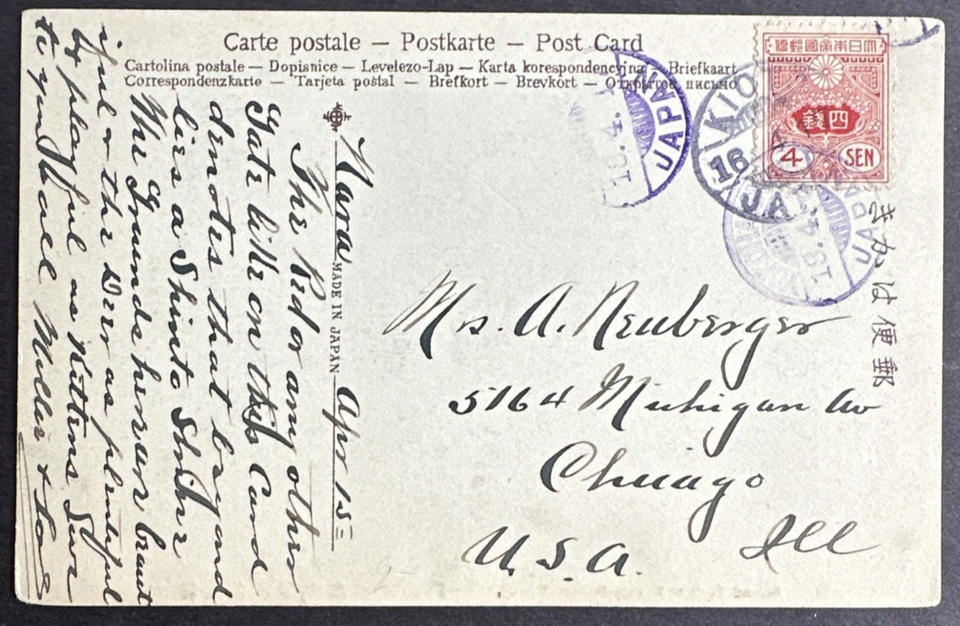 Carte postale — Postkarte — Post Card
Cartolina postale — Dopisnice — Levelezo-Lap — Karta korespondencyjna — Briefkaart
Correspondenzkarte — Tarjeta postal — Brefkort — Brevkort — Открытое письмо
大日本帝國郵便
四錢
4 SEN
KIO
16
JAPAN
18.4.
JAPAN
18.4.
JAPAN
きかは便郵
MADE IN JAPAN
Nara Apr 15
The Red or any other
Gate like on this Card
denotes that beyond
lies a Shinto Shrine
The Grounds here are beaut
iful & the Deer as plentiful
& playful as Kittens.
Mrs. A. Neuberger
5164 Michigan Av
Chicago
Ill
U.S.A.